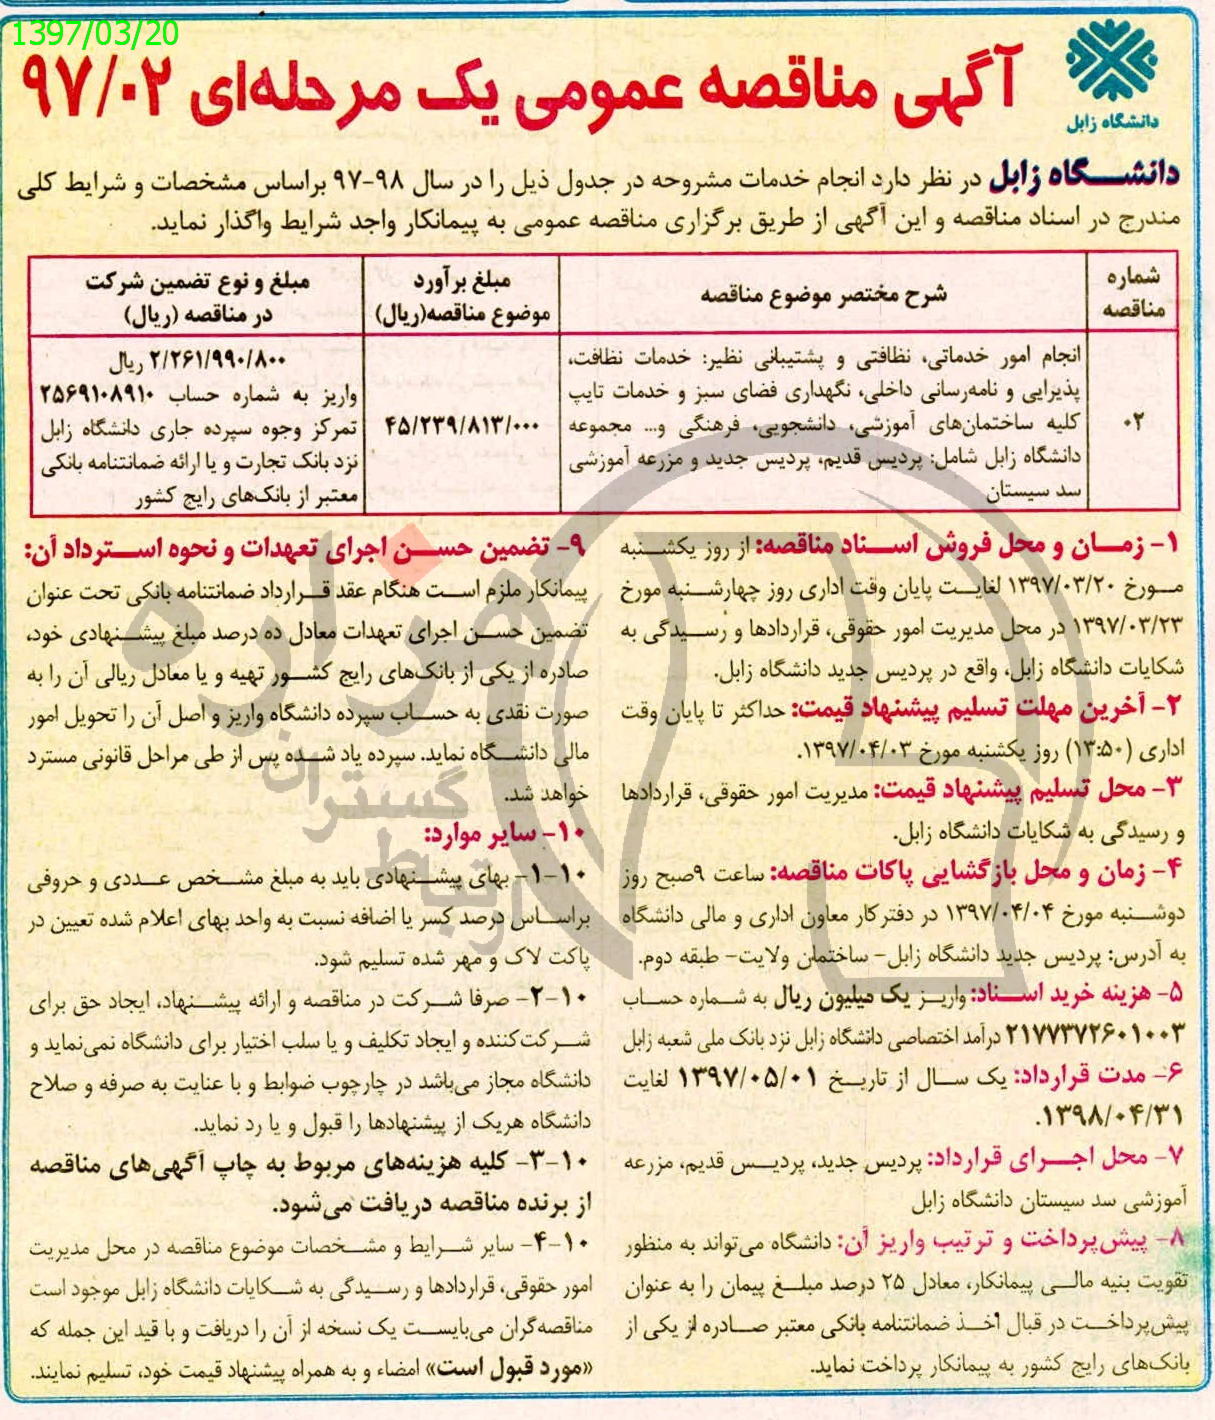 1397/03/20
دانشگاه زابل
آگهی مناقصه عمومی یک مرحله‌ای ۹۷/۰۲
دانشگاه زابل در نظر دارد انجام خدمات مشروحه در جدول ذیل را در سال ۹۸-۹۷ براساس مشخصات و شرایط کلی
مندرج در اسناد مناقصه و این آگهی از طریق برگزاری مناقصه عمومی به پیمانکار واجد شرایط واگذار نماید.
شماره
مناقصه
شرح مختصر موضوع مناقصه
مبلغ برآورد
موضوع مناقصه(ریال)
مبلغ و نوع تضمین شرکت
در مناقصه (ریال)
۰۲
انجام امور خدماتی، نظافتی و پشتیبانی نظیر: خدمات نظافت،
پذیرایی و نامه‌رسانی داخلی، نگهداری فضای سبز و خدمات تایپ
کلیه ساختمان‌های آموزشی، دانشجویی، فرهنگی و... مجموعه
دانشگاه زابل شامل: پردیس قدیم، پردیس جدید و مزرعه آموزشی
سد سیستان
۴۵/۲۳۹/۸۱۳/۰۰۰
۲/۲۶۱/۹۹۰/۸۰۰ ریال
واریز به شماره حساب ۲۵۶۹۱۰۸۹۱۰
تمرکز وجوه سپرده جاری دانشگاه زابل
نزد بانک تجارت و یا ارائه ضمانتنامه بانکی
معتبر از بانک‌های رایج کشور
۱- زمان و محل فروش اسناد مناقصه: از روز یکشنبه
مورخ ۱۳۹۷/۰۳/۲۰ لغایت پایان وقت اداری روز چهارشنبه مورخ
۱۳۹۷/۰۳/۲۳ در محل مدیریت امور حقوقی، قراردادها و رسیدگی به
شکایات دانشگاه زابل، واقع در پردیس جدید دانشگاه زابل.
۲- آخرین مهلت تسلیم پیشنهاد قیمت: حداکثر تا پایان وقت
اداری (۱۳:۵۰) روز یکشنبه مورخ ۱۳۹۷/۰۴/۰۳.
۳- محل تسلیم پیشنهاد قیمت: مدیریت امور حقوقی، قراردادها
و رسیدگی به شکایات دانشگاه زابل.
۴- زمان و محل بازگشایی پاکات مناقصه: ساعت ۹صبح روز
دوشنبه مورخ ۱۳۹۷/۰۴/۰۴ در دفترکار معاون اداری و مالی دانشگاه
به آدرس: پردیس جدید دانشگاه زابل- ساختمان ولایت- طبقه دوم.
۵- هزینه خرید اسناد: واریز یک میلیون ریال به شماره حساب
۲۱۷۷۳۷۲۶۰۱۰۰۳ درآمد اختصاصی دانشگاه زابل نزد بانک ملی شعبه زابل
۶- مدت قرارداد: یک سال از تاریخ ۱۳۹۷/۰۵/۰۱ لغایت
۱۳۹۸/۰۴/۳۱.
۷- محل اجرای قرارداد: پردیس جدید، پردیس قدیم، مزرعه
آموزشی سد سیستان دانشگاه زابل
۸- پیش‌پرداخت و ترتیب واریز آن: دانشگاه می‌تواند به منظور
تقویت بنیه مالی پیمانکار، معادل ۲۵ درصد مبلغ پیمان را به عنوان
پیش‌پرداخت در قبال اخذ ضمانتنامه بانکی معتبر صادره از یکی از
بانک‌های رایج کشور به پیمانکار پرداخت نماید.
۹- تضمین حسن اجرای تعهدات و نحوه استرداد آن:
پیمانکار ملزم است هنگام عقد قرارداد ضمانتنامه بانکی تحت عنوان
تضمین حسن اجرای تعهدات معادل ده درصد مبلغ پیشنهادی خود،
صادره از یکی از بانک‌های رایج کشور تهیه و یا معادل ریالی آن را به
صورت نقدی به حساب سپرده دانشگاه واریز و اصل آن را تحویل امور
مالی دانشگاه نماید. سپرده یاد شده پس از طی مراحل قانونی مسترد
خواهد شد.
۱۰- سایر موارد:
۱-۱۰- بهای پیشنهادی باید به مبلغ مشخص عددی و حروفی
براساس درصد کسر یا اضافه نسبت به واحد بهای اعلام شده تعیین در
پاکت لاک و مهر شده تسلیم شود.
۲-۱۰- صرفا شرکت در مناقصه و ارائه پیشنهاد، ایجاد حق برای
شرکت‌کننده و ایجاد تکلیف و یا سلب اختیار برای دانشگاه نمی‌نماید و
دانشگاه مجاز می‌باشد در چارچوب ضوابط و با عنایت به صرفه و صلاح
دانشگاه هریک از پیشنهادها را قبول و یا رد نماید.
۳-۱۰- کلیه هزینه‌های مربوط به چاپ آگهی‌های مناقصه
از برنده مناقصه دریافت می‌شود.
۴-۱۰- سایر شرایط و مشخصات موضوع مناقصه در محل مدیریت
امور حقوقی، قراردادها و رسیدگی به شکایات دانشگاه زابل موجود است
مناقصه‌گران می‌بایست یک نسخه از آن را دریافت و با قید این جمله که
«مورد قبول است» امضاء و به همراه پیشنهاد قیمت خود، تسلیم نمایند.